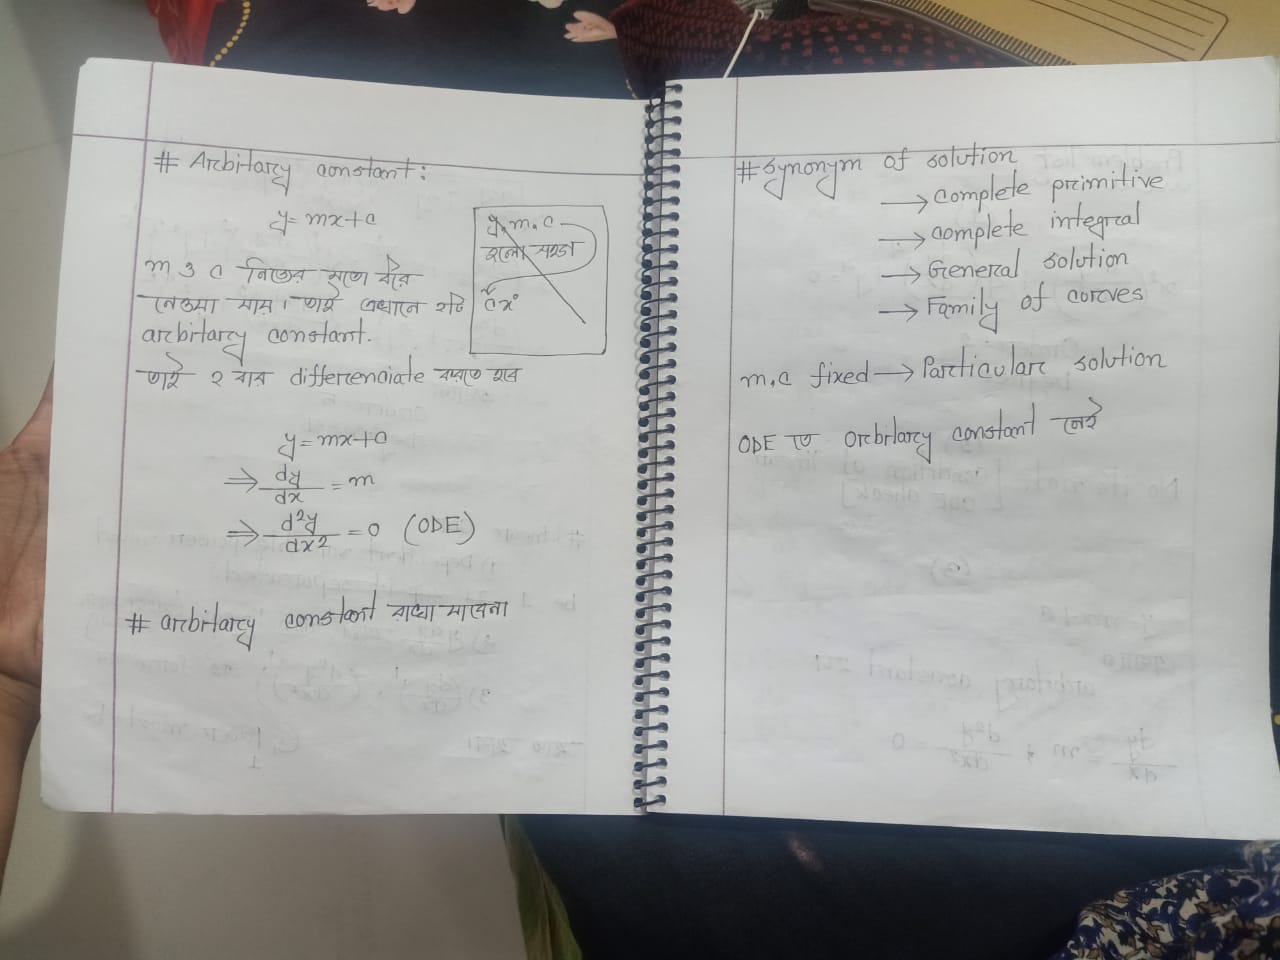 # Arbitary constant:
y = mx+c
y, m, c
হলো
cx°
m ও c নিজের মতো ধরে
নেওয়া যায়। তাই এখানে ২টি
arbitary constant.
তাই ২ বার differenciate করতে হবে
y = mx+c
⇒ dy/dx = m
⇒ d²y/dx² = 0 (ODE)
# arbitary constant রাখা যাবেনা
# Synonym of solution
→ complete primitive
→ complete integral
→ General solution
→ Family of corves
m,c fixed → Particular solution
ODE তে arbitary constant নেই